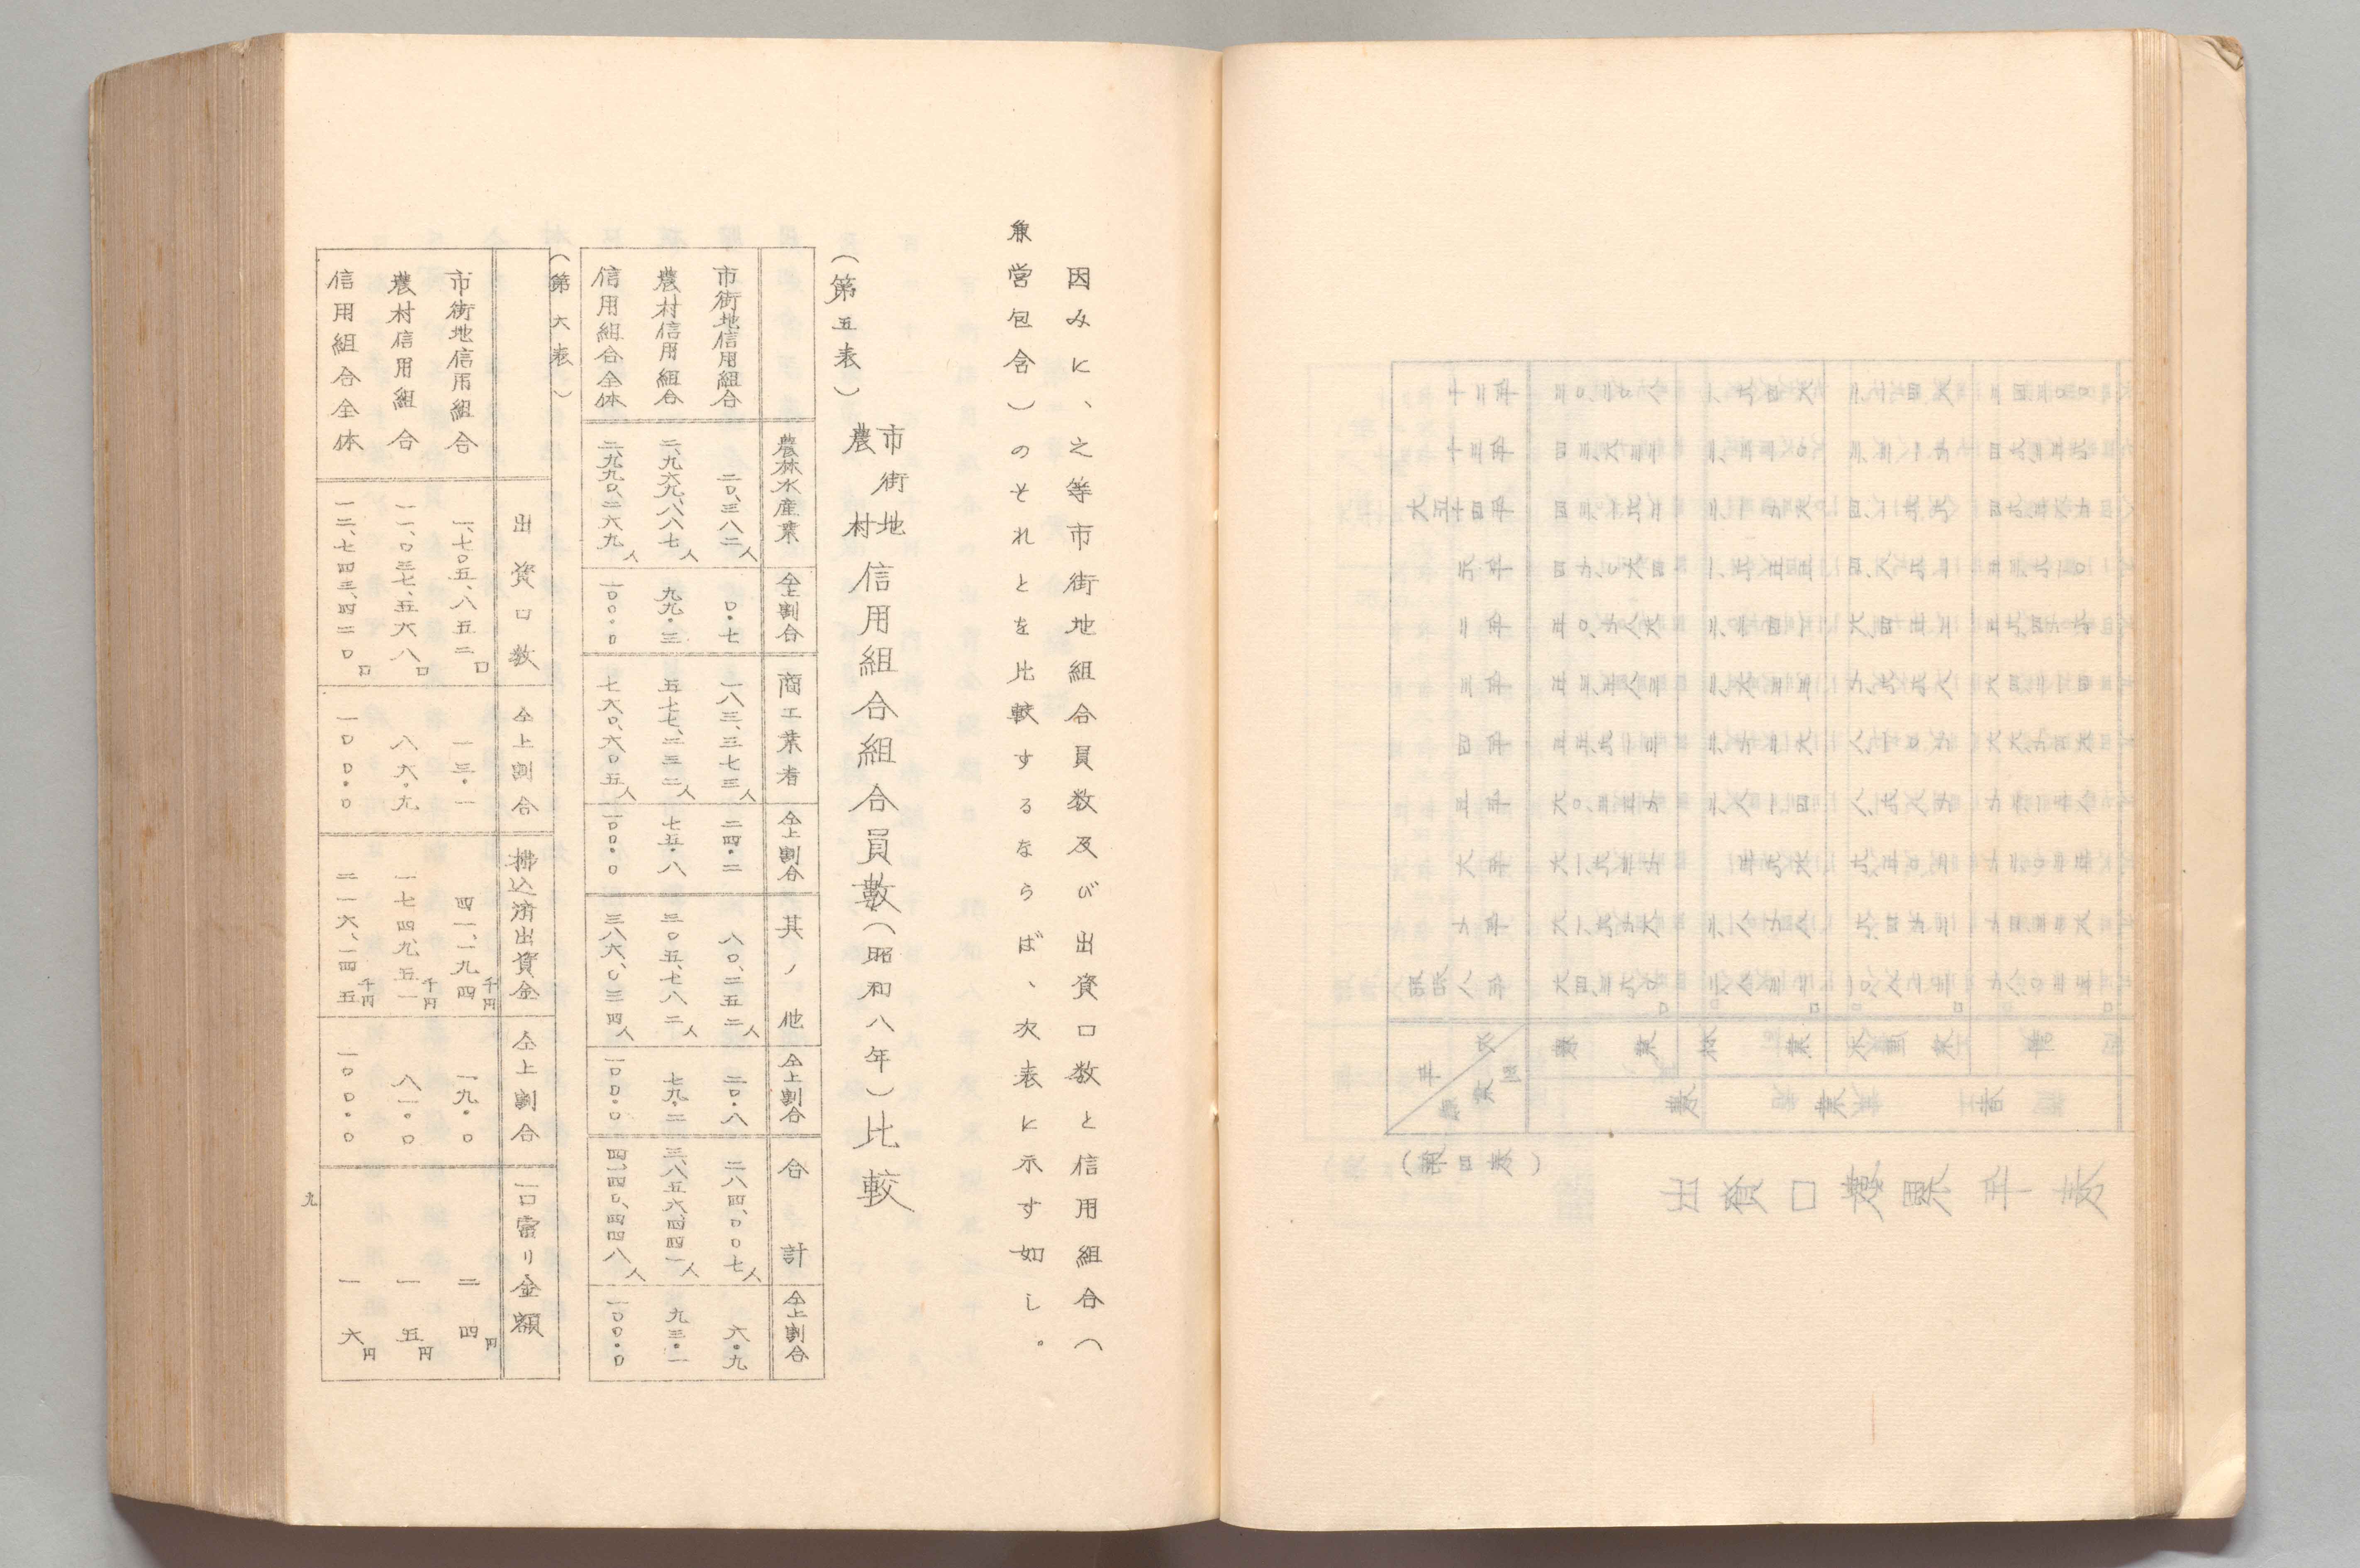 因みに、之等市街地組合員数及び出資口数と信用組合(
兼営包含)のそれとを比較するならば、次表に示す如し。
(第五表)
市街地
農村
信用組合組合員數(昭和八年)比較
農林水産業 仝上割合 商工業者 仝上割合 其ノ他 仝上割合 合計 仝上割合
市街地信用組合 二〇、三八二人 〇・七 一八三、三七三人 二四・二 八〇、二五二人 二〇・八 二八四、〇〇七人 六・九
農村信用組合 二、九六九、八八七人 九九・三 五七七、二三二人 七五・八 三〇五、七八二人 七九・二 三、八五六、四四一人 九三・一
信用組合全体 二、九九〇、二六九人 一〇〇・〇 七六〇、六〇五人 一〇〇・〇 三八六、〇三四人 一〇〇・〇 四、一四〇、四四八人 一〇〇・〇
(第六表)
出資口数 仝上割合 拂込済出資金 仝上割合 一口當リ金額
市街地信用組合 一、七〇五、八五二口 一三・一 四一、一九四千円 一九・〇 二四円
農村信用組合 一一、〇三七、五六八口 八六・九 一七四九、五一千円 八一・〇 一五円
信用組合全体 一二、七四三、四二〇口 一〇〇・〇 二一六、一四五千円 一〇〇・〇 一六円
九